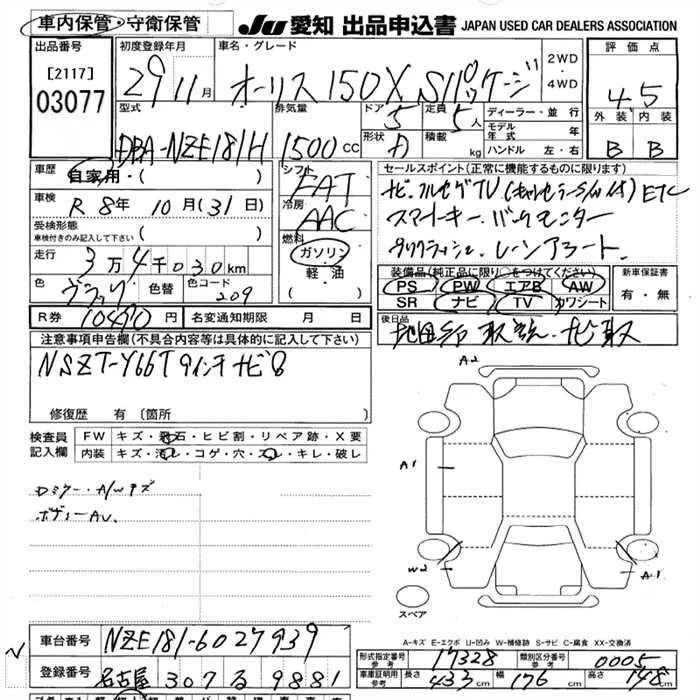 車内保管・守衛保管 JU 愛知 出品申込書 JAPAN USED CAR DEALERS ASSOCIATION
出品番号 [2117] 03077
初度登録年月 29 11月
車名・グレード オーリス 150X Sパッケージ
2WD・4WD
評価点 4.5
外装 内装 B B
型式 DBA-NZE181H
排気量 1500cc
ドア 5 定員 5人
形状 積載 kg
ディーラー・並行
モデル年式 年
ハンドル 左・右
車歴 自家用・( )
車検 R8年10月(31日)
受検形態 車検付きのみ記入して下さい ( )
走行 3万4千030km
色 ブラック 色替 色コード 209
シフト FAT
冷房 AAC
燃料 ガソリン・軽・油
セールスポイント(正常に機能するものに限ります)
ナビ・フルセグTV ETC
スマートキー・バックモニター
レーンアラート
装備品(純正品に限り○をつけてください)
PS PW エアB AW
SR ナビ TV カワシート
新車保証書 有・無
R券 10470円 名変通知期限 月 日
後日品
注意事項申告欄(不具合内容等は具体的に記入して下さい)
NSZT-Y66T 9インチナビ
修復歴 有 (箇所 )
検査員記入欄
FW キズ・飛石・ヒビ割・リペア跡・X要
内装 キズ・汚レ・コゲ・穴・スレ・キレ・破レ
ドミラー・A/Wキズ
ボディーAU
A2
A1
W2
A1
スペア
A-キズ E-エクボ U-凹み W-補修跡 S-サビ C-腐食 XX-交換済
車台番号 NZE181-6027939
登録番号 名古屋 307 る 9881
形式指定番号 参考 17328 類別区分番号 参考 0005
車庫証明用 参考 長さ 433cm 幅 176cm 高さ 148cm